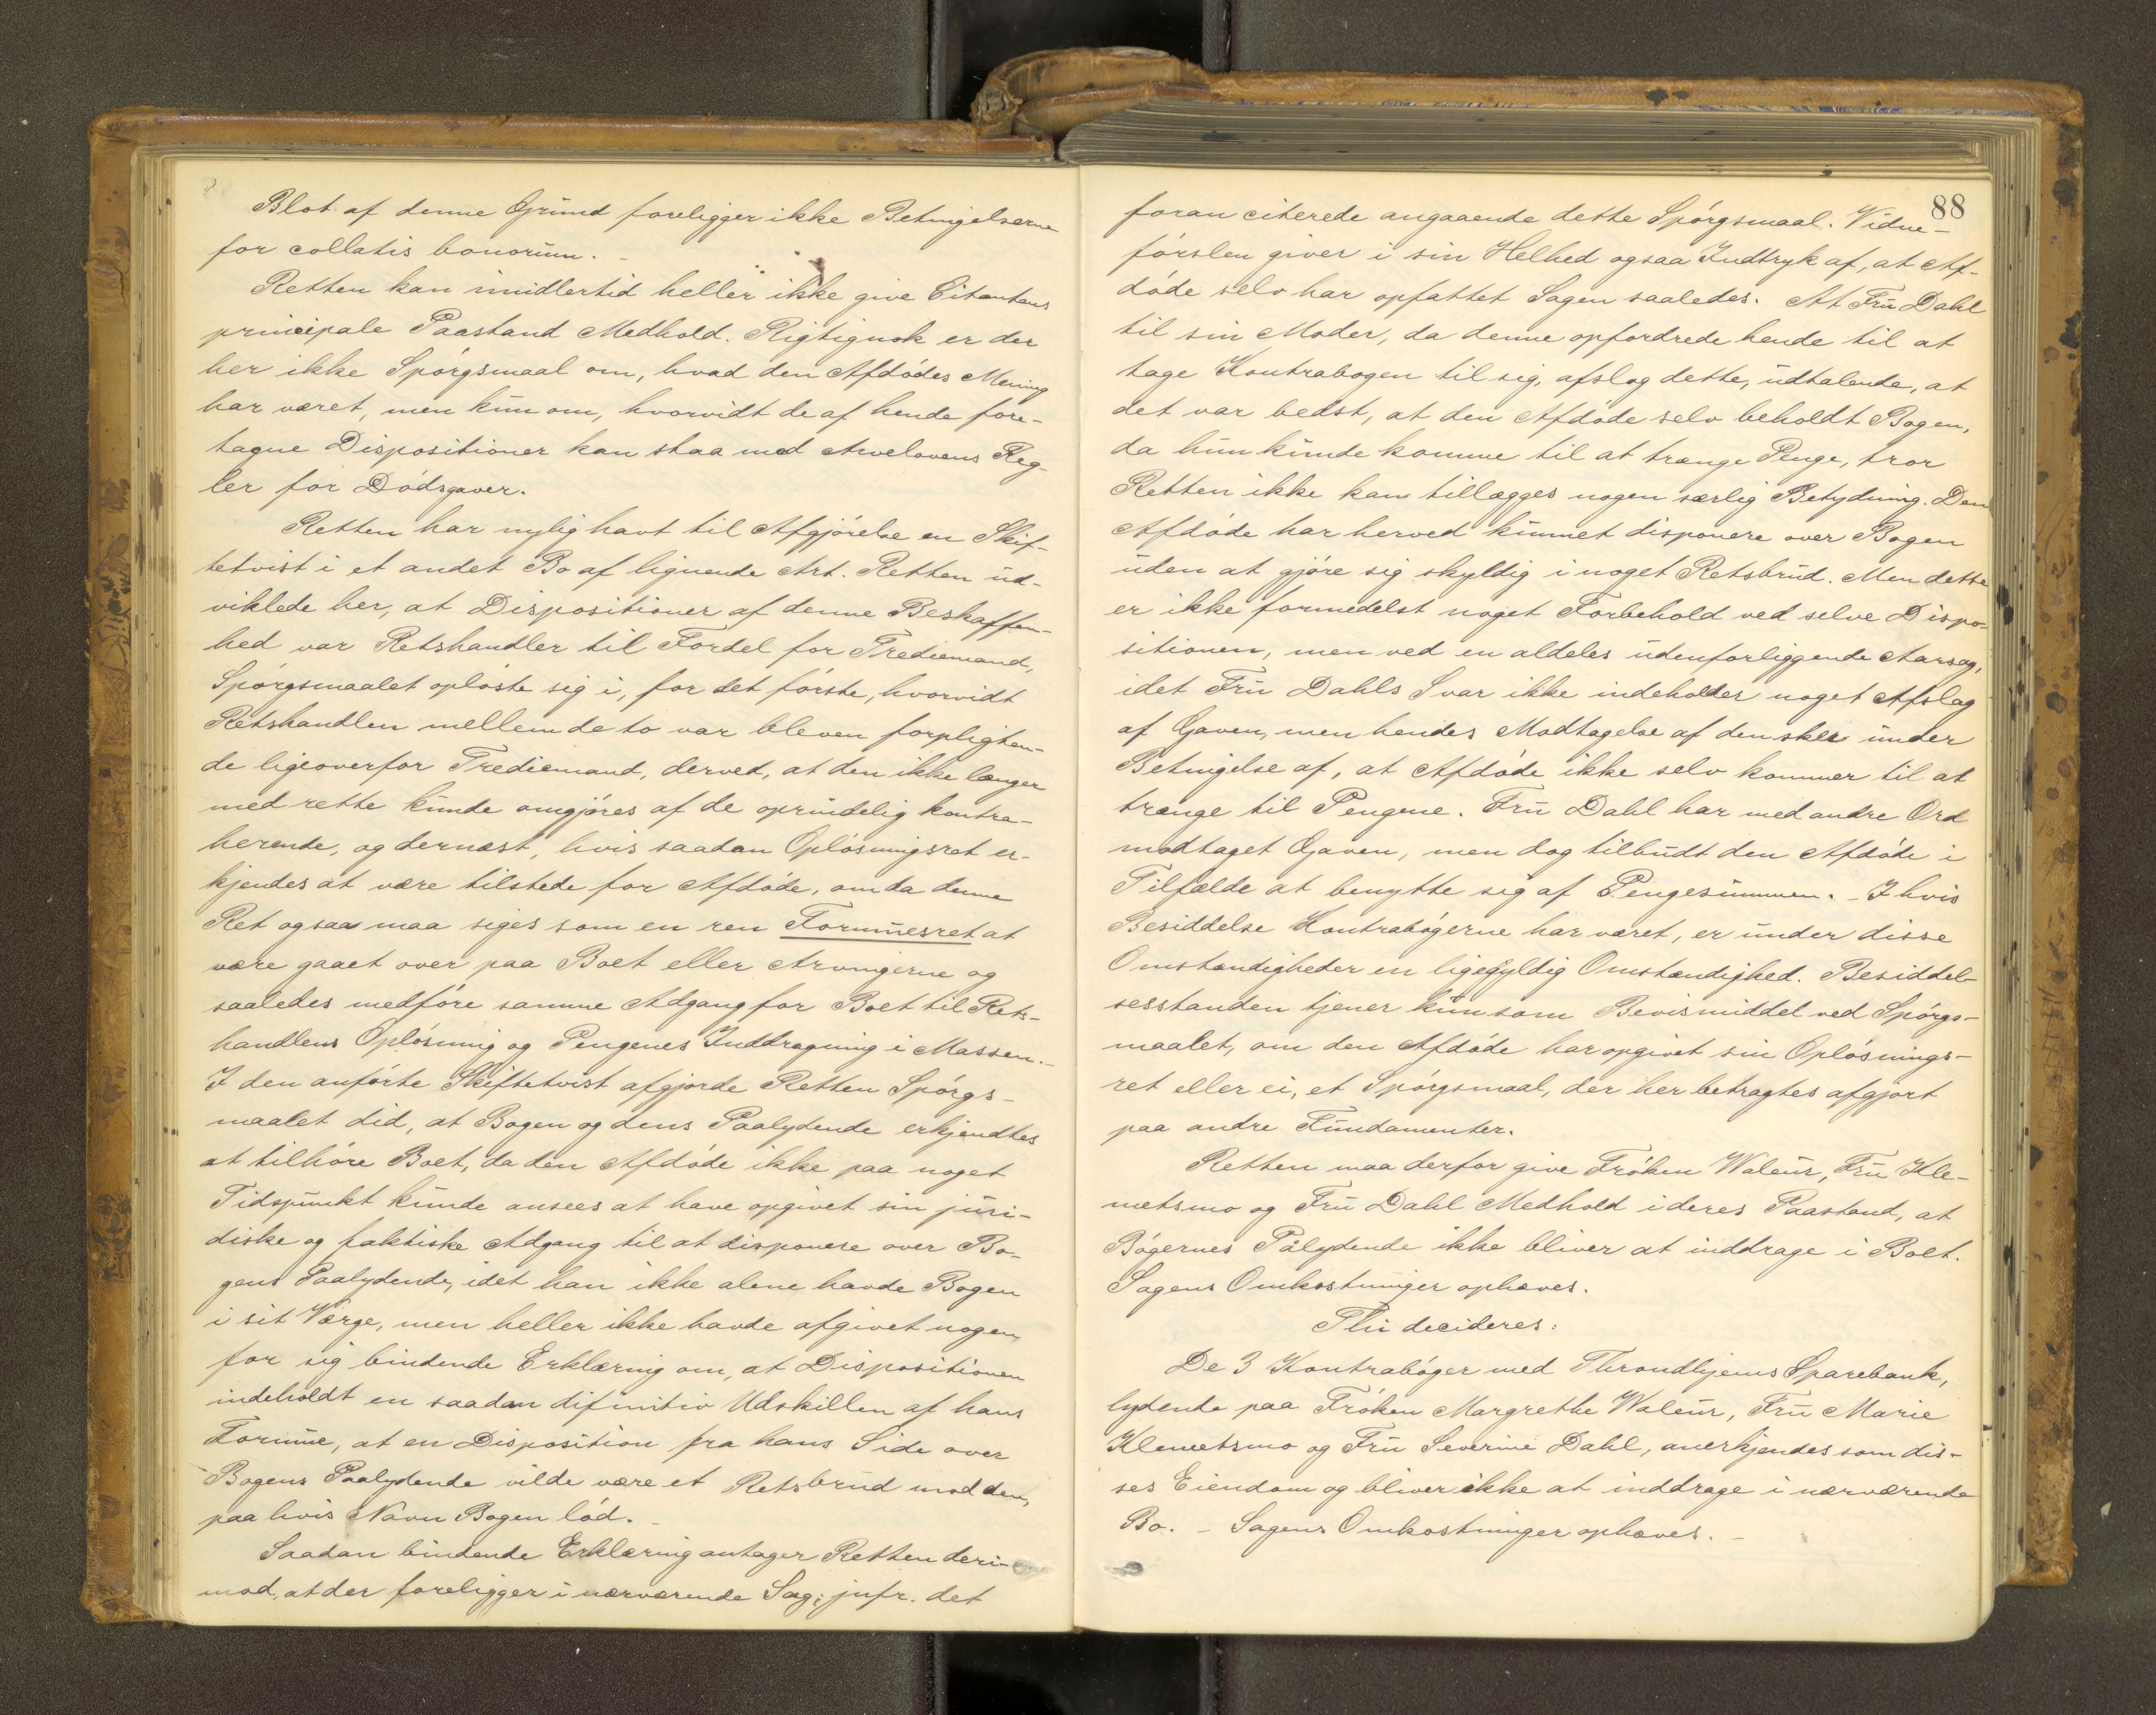 Blot af denne Grund foreligger ikke Betingelserne
for collatis bonorum. -
Retten kan imidlertid heller ikke give Citantens
principale Paastand Medhold. Rigtignok er der
her ikke Spørgsmaal om, hvad den Afdødes Mening
har været, men kun om, hvorvidt de af hende fore-
tagne Dispositioner kan staa med Arvelovens Reg-
ler for Dødsgaver.
Retten har nylig havt til Afgjørelse en Skif-
tetvist i et andet Bo af lignende Art. Retten ud-
viklede her, at Dispositioner af denne Beskaffen-
hed var Retshandler til Fordel for Trediemand,
Spørgsmaalet opløste sig i, for det første, hvorvidt
Retshandlen mellem de to var bleven forpligten-
de ligeoverfor Trediemand, derved, at den ikke længer
med rette kunde omgjøres af de oprindelig kontra-
herende, og dernæst, hvis saadan Opløsningsret er-
kjendes at være tilstede for Afdøde, om da denne
Ret ogsaa maa siges som en ren Formuesret at
være gaaet over paa Boet eller Arvingerne og
saaledes medføre samme Adgang for Boet til Rets-
handlens Opløsning og Pengenes Inddragning i Massen. -
I den anførte Skiftetvist afgjorde Retten Spørgs-
maalet did, at Bogen og dens Paalydende erkjendtes
at tilhøre Boet, da den Afdøde ikke paa noget
Tidspunkt kunde ansees at have opgivet sin juri-
diske og faktiske Adgang til at disponere over Bo-
gens Paalydende, idet han ikke alene havde Bogen
i sit Værge, men heller ikke havde afgivet nogen
for sig bindende Erklæring om, at Dispositionen
indeholdt en saadan difinitiv Udskillen af hans
Formue, at en Disposition fra hans Side over
Bogens Paalydende vilde være et Retsbrud mod den,
paa hvis Navn Bogen lød. -
Saadan bindende Erklæring antager Retten deri-
mod, at der foreligger i nærværende Sag; jvfr. det
88
foran citerede angaaende dette Spørgsmaal. Vidne-
førslen giver i sin Helhed ogsaa Indtryk af, at Af-
døde selv har opfattet Sagen saaledes. At Fru Dahl
til sin Moder, da denne opfordrede hende til at
tage Kontrabogen til sig, afslog dette, udtalende, at
det var bedst, at den Afdøde selv beholdt Bogen,
da hun kunde komme til at trænge Penge, tror
Retten ikke kan tillægges nogen særlig Betydning. Den
Afdøde har herved kunnet disponere over Bogen
uden at gjøre sig skyldig i noget Retsbrud. Men dette
er ikke formedelst noget Forbehold ved selve Dispo-
sitionen, men ved en aldeles udenforliggende Aarsag,
idet Fru Dahls Svar ikke indeholder noget Afslag
af Gaven, men hendes Modtagelse af den sker under
Betingelse af, at Afdøde ikke selv kommer til at
trænge til Pengene. Fru Dahl har med andre Ord
modtaget Gaven, men dog tilbudt den Afdøde i
Tilfælde at benytte sig af Pengesummen. - I hvis
Besiddelse Kontrabøgerne har været, er under disse
Omstændigheder en ligegyldig Omstændighed. Besiddel-
sesstanden tjener kun som Bevismiddel ved Spørgs-
maalet, om den Afdøde har opgivet sin Opløsnings-
ret eller ei, et Spørgsmaal, der her betragtes afgjort
paa andre Fundamenter.
Retten maa derfor give Frøken Waleur, Fru Kle-
metsmo og Fru Dahl Medhold i deres Paastand, at
Bøgernes Pålydende ikke bliver at inddrage i Boet.
Sagens Omkostninger ophæves.
Thi decideres:
De 3 Kontrabøger med Throndhjems Sparebank,
lydende paa Frøken Margrethe Waleur, Fru Marie
Klemetsmo og Fru Severine Dahl, anerkjendes som dis-
ses Eiendom og bliver ikke at inddrage i nærværende
Bo. - Sagens Omkostninger ophæves. -